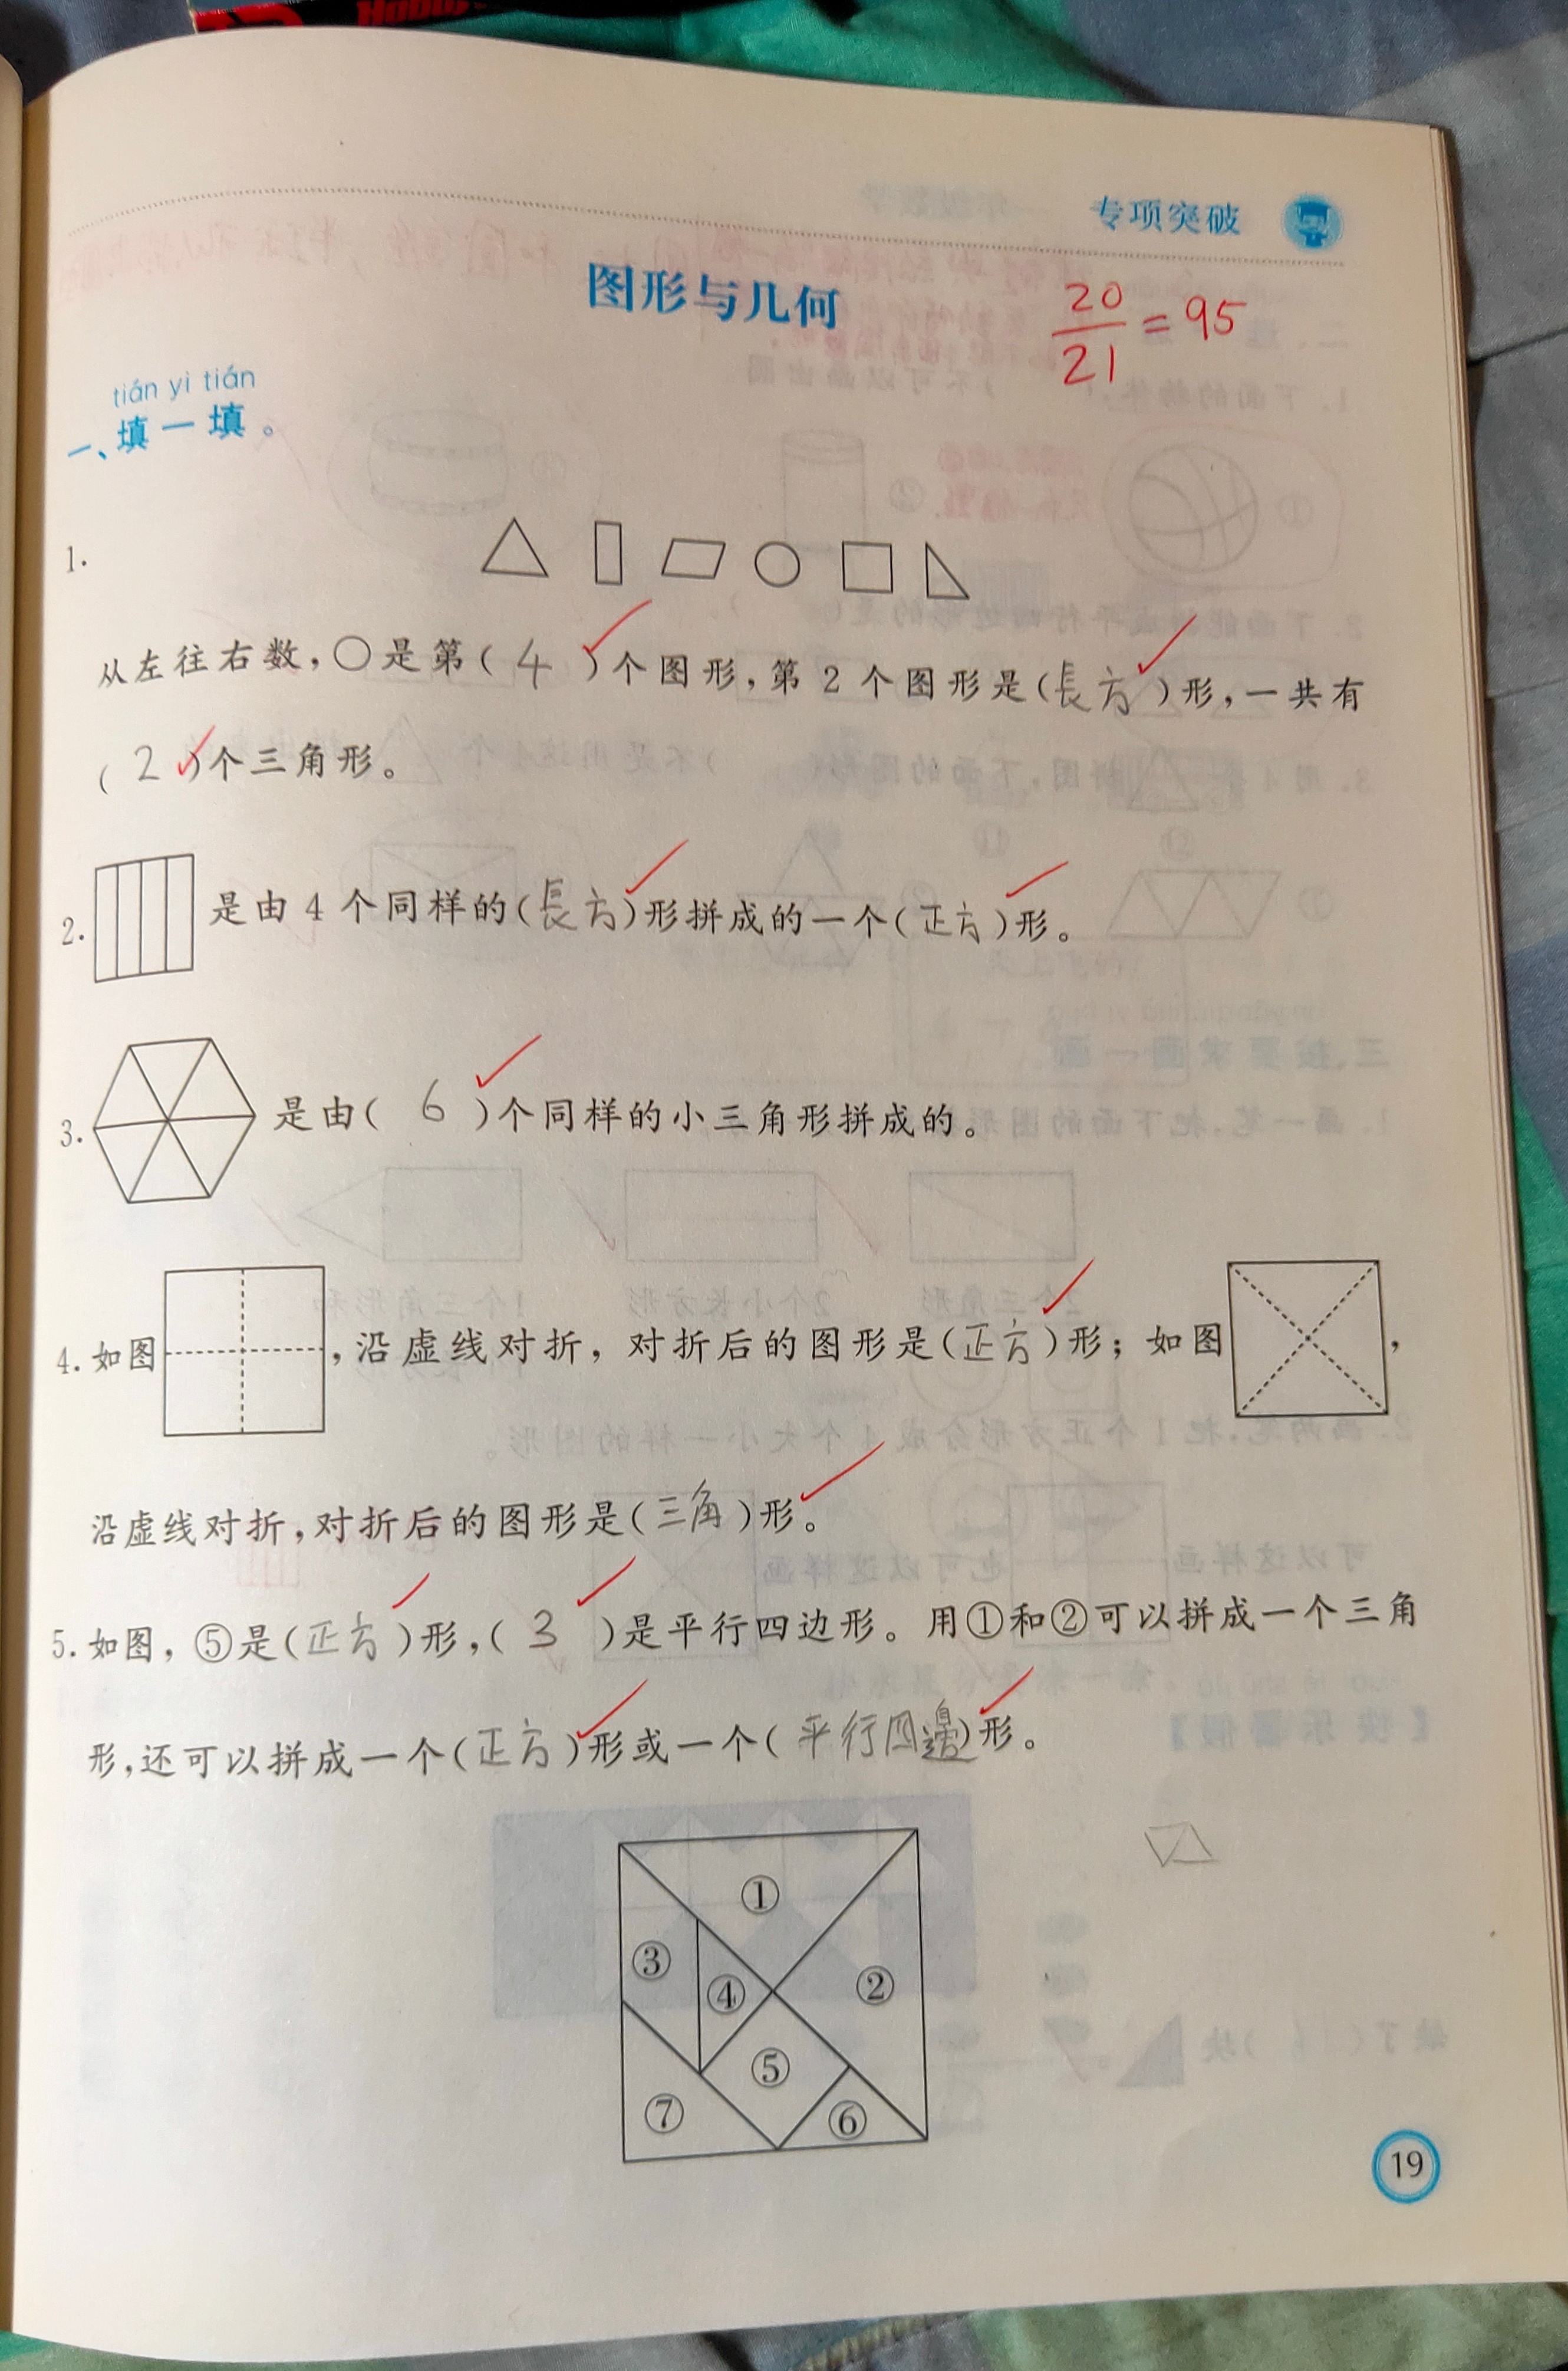 专项突破
图形与几何
20/21=95
tián yi tián
一、填一填。
1.
从左往右数,○是第(4)个图形,第2个图形是(長方)形,一共有
(2)个三角形。
2. 是由4个同样的(長方)形拼成的一个(正方)形。
3. 是由(6)个同样的小三角形拼成的。
4.如图,沿虚线对折,对折后的图形是(正方)形;如图,
沿虚线对折,对折后的图形是(三角)形。
5.如图,⑤是(正方)形,(3)是平行四边形。用①和②可以拼成一个三角
形,还可以拼成一个(正方)形或一个(平行四邊)形。
①
③
④
②
⑤
⑦
⑥
19